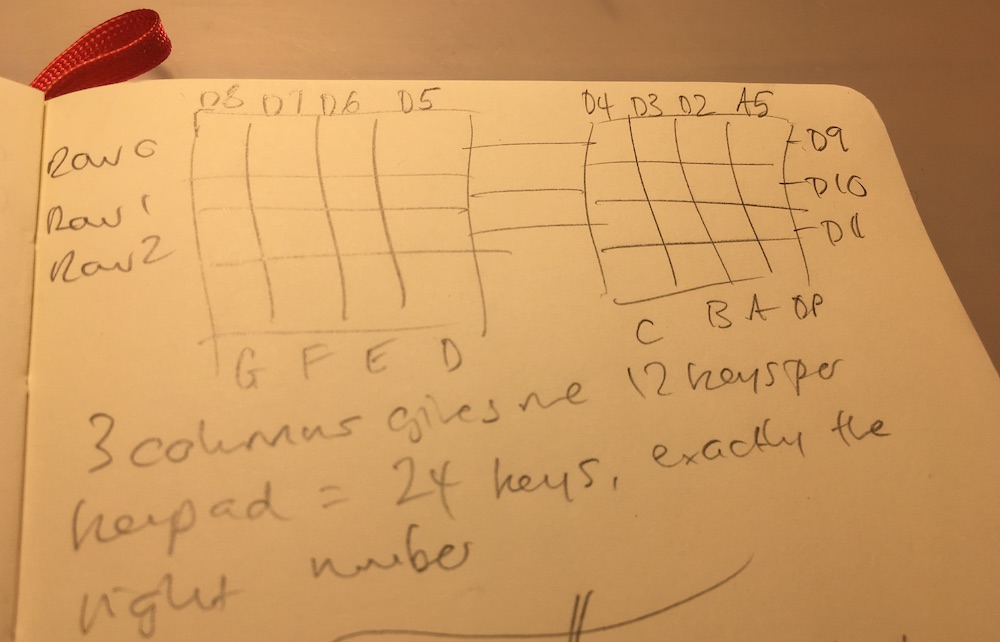 D8 D7 D6 D5 D4 D3 D2 A5
Row 0 D9
Row 1 D10
Row 2 D11
G F E D C B A DP
3 columns gives me 12 keys per
keypad = 24 keys, exactly the
right number